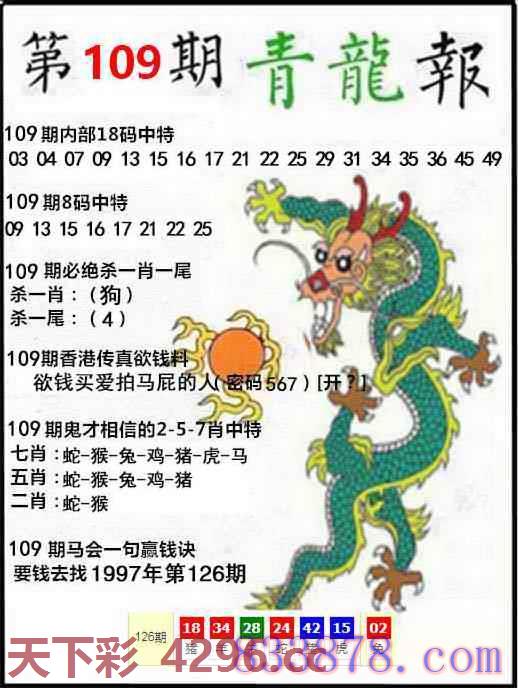 第109期 青龍報
109期内部18码中特
03 04 07 09 13 15 16 17 21 22 25 29 31 34 35 36 45 49
109期8码中特
09 13 15 16 17 21 22 25
109期必绝杀一肖一尾
杀一肖：（狗）
杀一尾：（4）
109期香港传真欲钱料
欲钱买爱拍马屁的人(密码567)[开？]
109期鬼才相信的2-5-7肖中特
七肖：蛇-猴-兔-鸡-猪-虎-马
五肖：蛇-猴-兔-鸡-猪
二肖：蛇-猴
109期马会一句赢钱诀
要钱去找1997年第126期
126期 18 34 28 24 42 15 02
猪 羊 蛇 虎 兔
天下彩 4296.cc